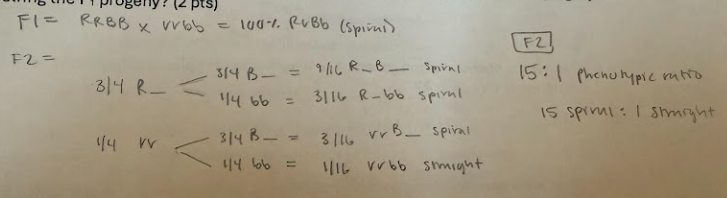 the F1 progeny? (2 pts)
F1 = RRBB x rrbb = 100% RrBb (spiral)
F2 =
3/4 R_
3/4 B_ = 9/16 R_B_ spiral
1/4 bb = 3/16 R_bb spiral
1/4 rr
3/4 B_ = 3/16 rrB_ spiral
1/4 bb = 1/16 rrbb straight
F2
15:1 phenotypic ratio
15 spiral : 1 straight